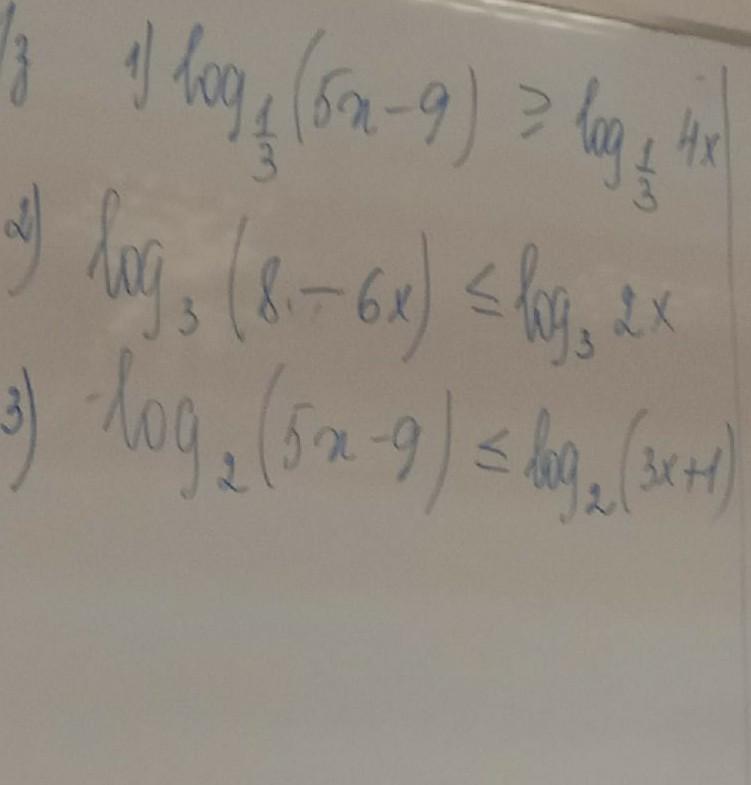 /з 1) log 1/3 (5x-9) ≥ log 1/3 4x
2) log₃ (8-6x) ≤ log₃ 2x
3) log₂ (5x-9) ≤ log₂ (3x+1)